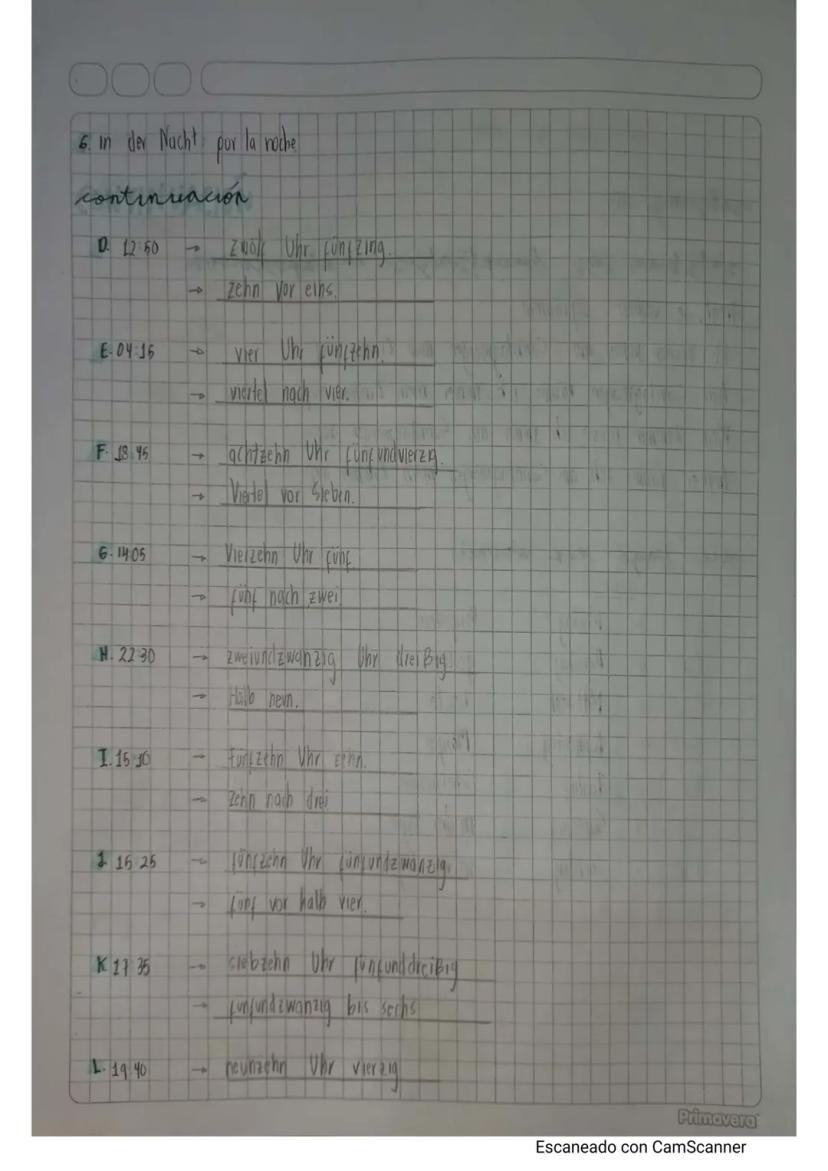 6. in der Nacht por la noche
continuación
D. 12:50 → zwölf Uhr fünfzing.
→ zehn vor eins.
E. 04:15 → vier Uhr fünfzehn.
→ viertel nach vier.
F. 18:45 → achtzehn Uhr fünfundvierzig.
→ Viertel vor Sieben.
G. 14:05 → Vierzehn Uhr fünf
→ fünf nach zwei
H. 22:30 → zweiundzwanzig Uhr dreißig
→ Halb neun.
I. 15:10 → Fünfzehn Uhr zehn.
→ Zehn nach drei
J. 15:25 → fünfzehn Uhr fünfundzwanzig
→ fünf vor halb vier.
K 17:35 → siebzehn Uhr fünfunddreißig
→ fünfundzwanzig bis sechs
L. 19:40 → neunzehn Uhr vierzig
Primavera
Escaneado con CamScanner